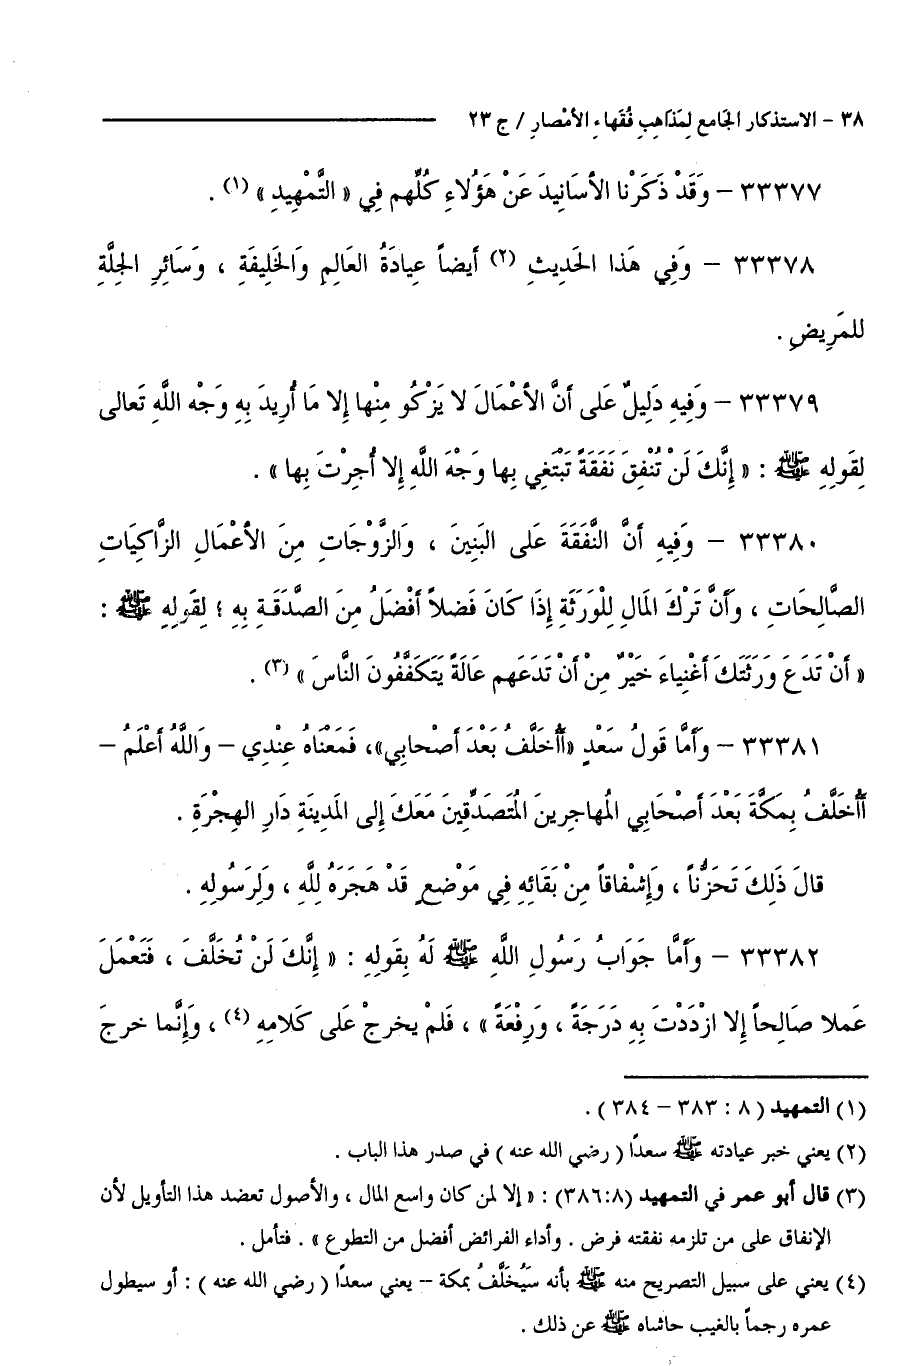 ٣٨ - الاستذكار الجَامع لِمَذاهِبِ فُقَهاءِ الأَمْصارِ / ج ٢٣
٣٣٣٧٧ - وَقَدْ ذَكَرْنا الأسَانِيدَ عَنْ هَؤُلاءِ كُلِّهم فِي « التَّمْهِيدِ » (١) .
٣٣٣٧٨ - وَفِي هَذا الحَدِيثِ (٢) أيضاً عِيادَةُ العَالِمِ وَالخَلِيفَةِ ، وَسَائِرِ الجِلَّةِ
للمَرِيضِ .
٣٣٣٧٩ - وَفِيهِ دَلِيلٌ عَلى أنَّ الأعْمَالَ لا يَزْكُو مِنْها إِلا مَا أُرِيدَ بِهِ وَجْه اللَّهِ تَعالى
لِقَولِهِ ﷺ : « إِنَّكَ لَنْ تُنْفِقَ نَفَقَةً تَبْتَغِي بِها وَجْهَ اللَّهِ إِلا أُجِرْتَ بِها » .
٣٣٣٨٠ - وَفِيهِ أنَّ النَّفَقَةَ عَلى البَنِينَ ، وَالزَّوْجَاتِ مِنَ الأعْمَالِ الزَّاكِيَاتِ
الصَّالِحَاتِ ، وَأنَّ تَرْكَ المَالِ لِلْوَرَثَةِ إِذَا كَانَ فَضلاً أفْضَلُ مِنَ الصَّدَقَـةِ بِهِ ؛ لِقَولِهِ ﷺ :
« أنْ تَدَعَ وَرَثَتَكَ أغْنِياءَ خَيْرٌ مِنْ أنْ تَدَعَهم عَالَةً يَتَكَفَّفُونَ النَّاسَ » (٣) .
٣٣٣٨١ - وَأمَّا قَولُ سَعْدٍ «أأُخَلَّفُ بَعْدَ أصْحابِي»، فَمَعْنَاهُ عِنْدِي - وَاللَّهُ أعْلَمُ -
أأُخَلَّفُ بِمَكَّةَ بَعْدَ أصْحَابِي المُهاجِرِينَ المُتَصَدِّقِينَ مَعَكَ إِلى المَدِينَةِ دَارِ الهِجْرَةِ .
قالَ ذَلِكَ تَحَزُّناً ، وَإِشْفاقاً مِنْ بَقَائِهِ فِي مَوْضعٍ قَدْ هَجَرَهُ لِلَّهِ ، وَلِرَسُولِهِ .
٣٣٣٨٢ - وَأمَّا جَوَابُ رَسُولِ اللَّهِ ﷺ لَهُ بِقَولِهِ : « إِنَّكَ لَنْ تُخَلَّفَ ، فَتَعْمَلَ
عَملا صَالِحاً إِلا ازْدَدْتَ بِهِ دَرَجَةً ، وَرِفْعَةً » ، فَلمْ يخرجْ عَلى كَلامِهِ (٤) ، وَإِنَّما خرجَ
(١) التمهيد ( ٨ : ٣٨٣ - ٣٨٤ ) .
(٢) يعني خبر عيادته ﷺ سعدًا ( رضي الله عنه ) في صدر هذا الباب .
(٣) قال أبو عمر في التمهيد (٣٨٦:٨) : « إلا لمن كان واسع المال ، والأصول تعضد هذا التأويل لأن
الإنفاق على من تلزمه نفقته فرض . وأداء الفرائض أفضل من التطوع » . فتأمل .
(٤) يعني على سبيل التصريح منه ﷺ بأنه سَيُخَلَّفُ بمكة -- يعني سعدًا ( رضي الله عنه ) : أو سيطول
عمره رجماً بالغيب حاشاه ﷺ عن ذلك .